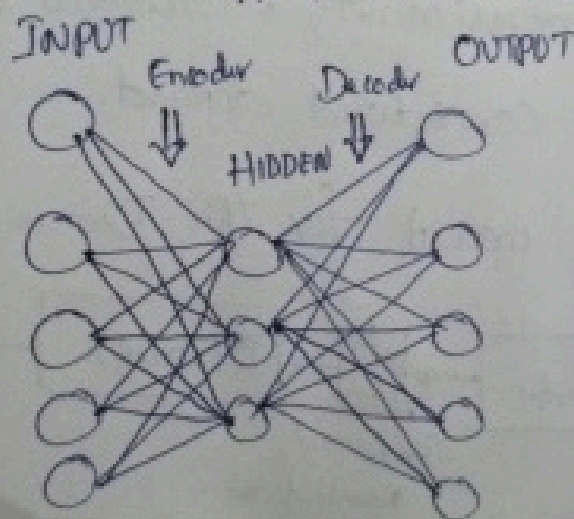 INPUT
Encoder
Decoder
OUTPUT
HIDDEN